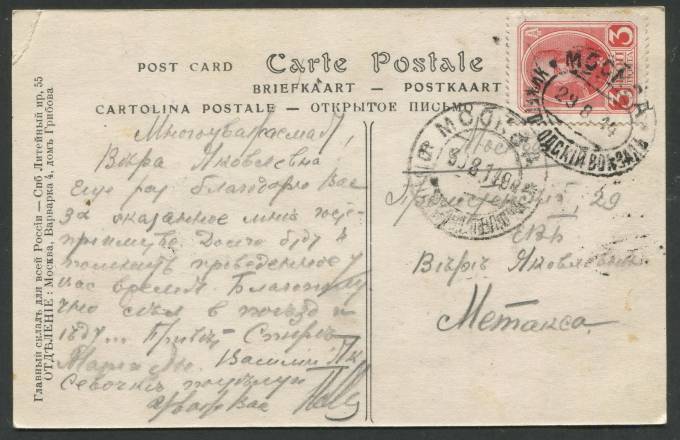 POST CARD Carte Postale
BRIEFKAART — POSTKAART
CARTOLINA POSTALE — ОТКРЫТОЕ ПИСЬМО
Главный складъ для всей Россіи — Спб Литейный пр, 55
ОТДѢЛЕНІЕ: Москва, Варварка 4, домъ Грибова
Многоуважаемая,
Вѣра Яковлевна
Еще раз благодарю Вас
За оказанное мнѣ госте-
приимство. Долго буду
помнить проведенное у
Вас время. Благополу-
чно сѣл в поезд и
ѣду... Привѣт
Василию Як
Севочки поцѣлуи
Вас
3
3
МОСКВА
29 8 14
ВОКЗАЛЪ
МОСКВА
30 8 14
Москва
29
ЕВѢ
Вѣрѣ Яковлевнѣ
Метакса.